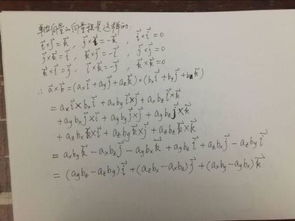 单位向量的向量积是这样的:
i⃗×j⃗=k⃗, j⃗×i⃗=-k⃗ i⃗×i⃗=0
j⃗×k⃗=i⃗, k⃗×j⃗=-i⃗, j⃗×j⃗=0
k⃗×i⃗=j⃗ i⃗×k⃗=-j⃗, k⃗×k⃗=0
∴ a⃗×b⃗=(axi⃗+ayj⃗+azk⃗)×(bxi⃗+byj⃗+bzk⃗)
=axbx i⃗×i⃗+axby i⃗×j⃗+axbz i⃗×k⃗
+aybx j⃗×i⃗+ayby j⃗×j⃗+aybz j⃗×k⃗
+azbx k⃗×i⃗+azby k⃗×j⃗+azbz k⃗×k⃗
=axby k⃗-axbz j⃗-aybx k⃗+aybz i⃗+azbx j⃗-azby i⃗
=(aybz-azby)i⃗+(azbx-axbz)j⃗+(axby-aybx)k⃗